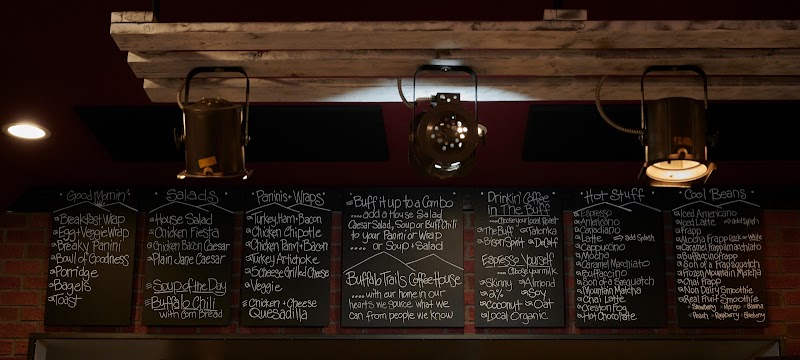 Good Mornin'
Breakfast Wrap
Egg + Veggie Wrap
Breaky Panini
Bowl of Goodness
Porridge
Bagels
Toast
Salads
House Salad
Chicken Fiesta
Chicken Bacon Caesar
Plain Jane Caesar
Soup of the Day
Buffalo Chili
with Corn Bread
Paninis + Wraps
Turkey, Ham + Bacon
Chicken Chipotle
Chicken Parm + Bacon
Turkey Artichoke
3 Cheese Grilled Cheese
Veggie
Chicken + Cheese
Quesadilla
Buff it up to a Combo
.... add a House Salad
Caesar Salad, Soup or Buff Chili
to your Panini or Wrap
.... or Soup + Salad
Buffalo Trails Coffee House
.... with our home in our
hearts we source what we
can from people we know
Drinkin' Coffee
in The Buff
Choose your local Roast
The Buff Tatonka
Bison Spirit Decaff
Espresso Yourself
Choose your milk
Skinny Almond
2% Soy
Coconut Oat
Local Organic
Hot Stuff
Espresso
Americano
Cappucino
Latte add Splash
Cappuccino
Mocha
Caramel Machiato
Buffaccino
Son of a Sasquatch
Mountain Matcha
Chai Latte
Creston Fog
Hot Chocolate
Cool Beans
Iced Americano
Iced Latte add splash
Frapp
Mocha Frapp Dark or White
Caramel Frapp Machiato
Buffaccino Frapp
Son of a Frapsquatch
Frozen Mountain Matcha
Chai Frapp
Non Dairy Smoothie
Real Fruit Smoothie
Strawberry Mango Banana
Peach Raspberry Blueberry